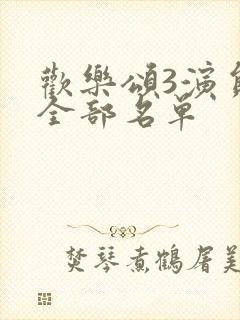 歡樂頌3演員
全部名單
焚琴煮鶴屠美